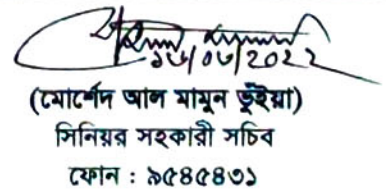 ১৬/০৩/2022
(মোর্শেদ আল মামুন ভুঁইয়া)
সিনিয়র সহকারী সচিব
ফোন : ৯৫৪৫৪৩১